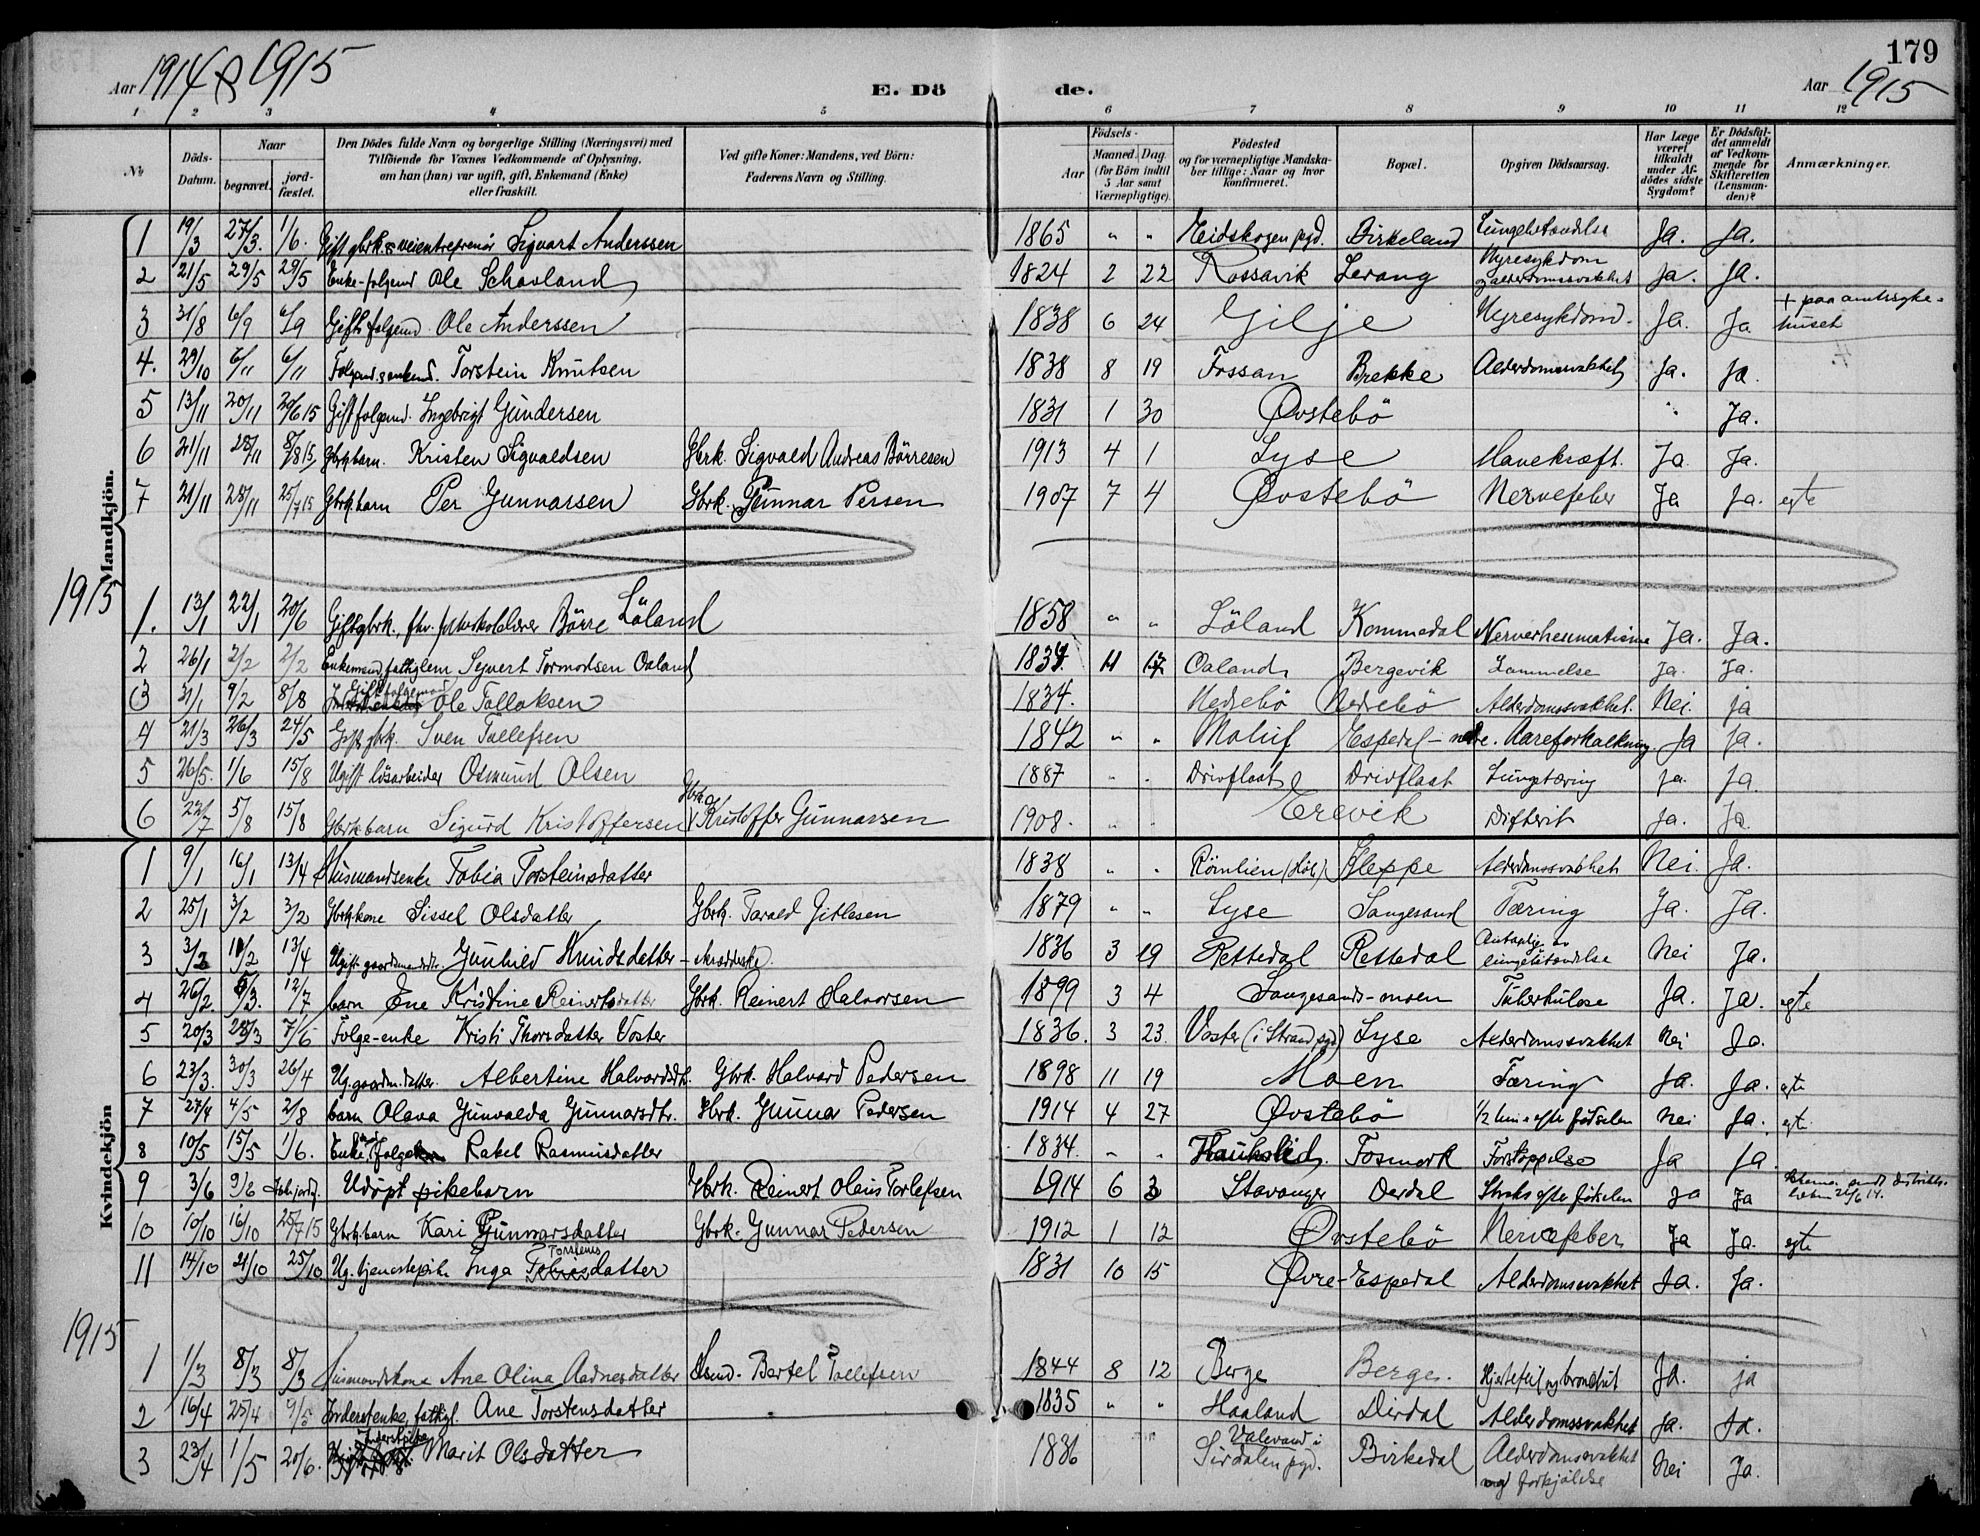 179
Aar 1914 & 1915
E. Dö de.
Aar 1915
1 2 3 4 5 6 7 8 9 10 11 12
No
Döds-Datum.
Naar
begravet.
jord-fæstet.
Den Dödes fulde Navn og borgerlige Stilling (Næringsvei) med
Tilföiende for Voxnes Vedkommende af Oplysning,
om han (hun) var ugift, gift, Enkemand (Enke)
eller fraskilt.
Ved gifte Koner: Mandens, ved Börn:
Faderens Navn og Stilling.
Födsels-
Aar
Maaned.
Dag.
(for Börn indtil
5 Aar samt
Værnepligtige).
Födested
og for værnepligtige Mandska-
ber tillige: Naar og hvor
konfirmeret.
Bopæl.
Opgiven Dödsaarsag.
Har Læge
været
tilkaldt
under Af-
dödes sidste
Sygdom?
Er Dödsfal-
det anmeldt
af Vedkom-
mende for
Skifteretten
(Lensman-
den)?
Anmærkninger.
Mandkjön.
1 19/3 27/3. 1/6. Gift gbrk. & veientreprenör Sigvart Anderssen 1865 " " Eidskogen pgd. Birkeland Lungebetændelse Ja. Ja.
2 21/5 29/5 29/5 Enke-folgemd Ole Schaoland 1824 2 22 Rossavik Lerang Nyresykdom og alderdomssvakhet Ja. Ja.
3 31/8 6/9 6/9 Gift folgemd. Ole Anderssen 1838 6 24 Gilje Nyresykdom. Ja. Ja + paa amtssyke-
huset
4. 29/10 6/11 6/11 Folgemd. enkemd. Torstein Knutsen 1838 8 19 Fossan Brekke Alderdomssvakhet Ja. Ja.
5 13/11 20/11 20/6 15 Gift folgemd. Ingebrigt Gundersen 1831 1 30 Øvstebö " Ja.
6 21/11 28/11 8/8 15 Gbrk.barn. Kristen Sigvaldsen Gbrk. Sigvald Andreas Börresen 1913 4 1 Lyse Mavekræft. Ja Ja.
7 21/11 28/11 25/7 15 Gbrk.barn Per Gunnarsen Gbrk. Gunnar Persen 1907 7 4 Øvstebö Nervefeber Ja Ja. egte
1915
1. 13/1 22/1 20/6 Gift gbrk., fhv. Börre Löland 1858 " " Löland Kommedal Nerverheumatisme Ja. Ja.
2 26/1 2/2 2/2 Enkemand, fatiglem Syvert Tormodsen Oaland 1834 11 17 Oaland Bergevik Lammelse Ja. Ja.
3 31/1 9/2 8/8 Gift folgemand Ole Tollaksen 1834. Nedrebö Nedrebö Alderdomssvakhet. Nei ja
4 21/3 26/3 24/5 Gift gbrk. Sven Tollefsen 1842 " " Molaug Espedal - nedre. Aareforkalkning Ja Ja.
5 26/5. 1/6 15/8 Ugift lösarbeider Osmund Olsen 1887 " " Drivflaat Drivflaat Lungetæring ja. ja.
6 22/7 5/8 15/8 Gbrk barn Sigurd Kristoffersen Gbrk. Kristoffer Gunnarsen 1908. " " Erevik Difterit Ja. Ja.
Kvindekjön
1 9/1 16/1 13/4 Husmandsenke Tobia Torsteinsdatter 1838 " " Römlien (Høle) Kleppe Alderdomssvakhet Nei. Ja.
2 25/1 3/2 3/2 Gbrk.kone Sissel Olsdatter Gbrk. Tarald Gitlesen 1879 " " Lyse Songesand Tæring Ja. Ja.
3 3/2 10/2 13/4 Ugift gaardmandsdtr. Gunhild Knudsdatter - skrædderske. 1836 3 19 Rettedal Rettedal Antagelig av lungebetændelse Nei Ja.
4 26/2. 5/3. 12/7 barn Ane Kristine Reinertsdatter Gbrk. Reinert Halvorsen 1899 3 4 Songesands-moen Tuberkulose Ja. Ja. egte
5 20/3 28/3 7/6 Folge-enke Kristi Thorsdatter Voster 1836. 3 23. Voster (i Strand pgd) Lyse Alderdomssvakhet Nei Ja.
6 23/3. 30/3 26/4 Ug. gaardm. datter Albertine Halvardsdtr. Gbrk. Halvard Pedersen 1898 11 19 Moen Tæring Ja. Ja. egte
7 27/4 4/5 2/8 barn Olava Gunvalda Gunnarsdtr. Gbrk. Gunnar Pedersen 1914 4 27 Øvstebö 1/2 time efter födselen Nei Ja. egt.
8 10/5 15/5 1/6. Enke, folge Rakel Rasmusdatter 1834. " " Haukalid Fosmark Forstoppelse Ja Ja.
9 3/6 9/6 Ikke jordf. Udöpt pikebarn Gbrk. Reinert Oleus Torlefsen 1914 6 3 Stavanger Oerdal Straks efter födselen ja Ja
10 10/10 16/10 25/7 15 Gbrk.barn Kari Gunnarsdatter Gbrk. Gunnar Pedersen 1912 1 12 Øvstebö Nervefeber Ja Ja. egte
11 14/10 21/10 25/10 Ug. tjenestepike Inga Torstensdatter 1831 10 15 Øvre-Espedal Alderdomssvakhet Ja. Ja.
1915
1 1/3 8/3 8/3 Husmandskone Ane Olina Aadnesdatter Husmd. Bertel Tollefsen 1844 8 12 Berge Berge. Hjertefeil og bronchit Ja. ja
2 16/4 25/4 9/5 Inderstenke, fatigl. Ane Torstensdatter 1835 " " Haaland Dirdal Alderdomssvakhet Ja. Ja.
3 23/4 1/5 20/6. Inderstpike Marit Olsdatter 1836 " Valevand i Sirdalen pgd. Birkedal Alderdomssvakhet og forkjölelse Nei Ja.